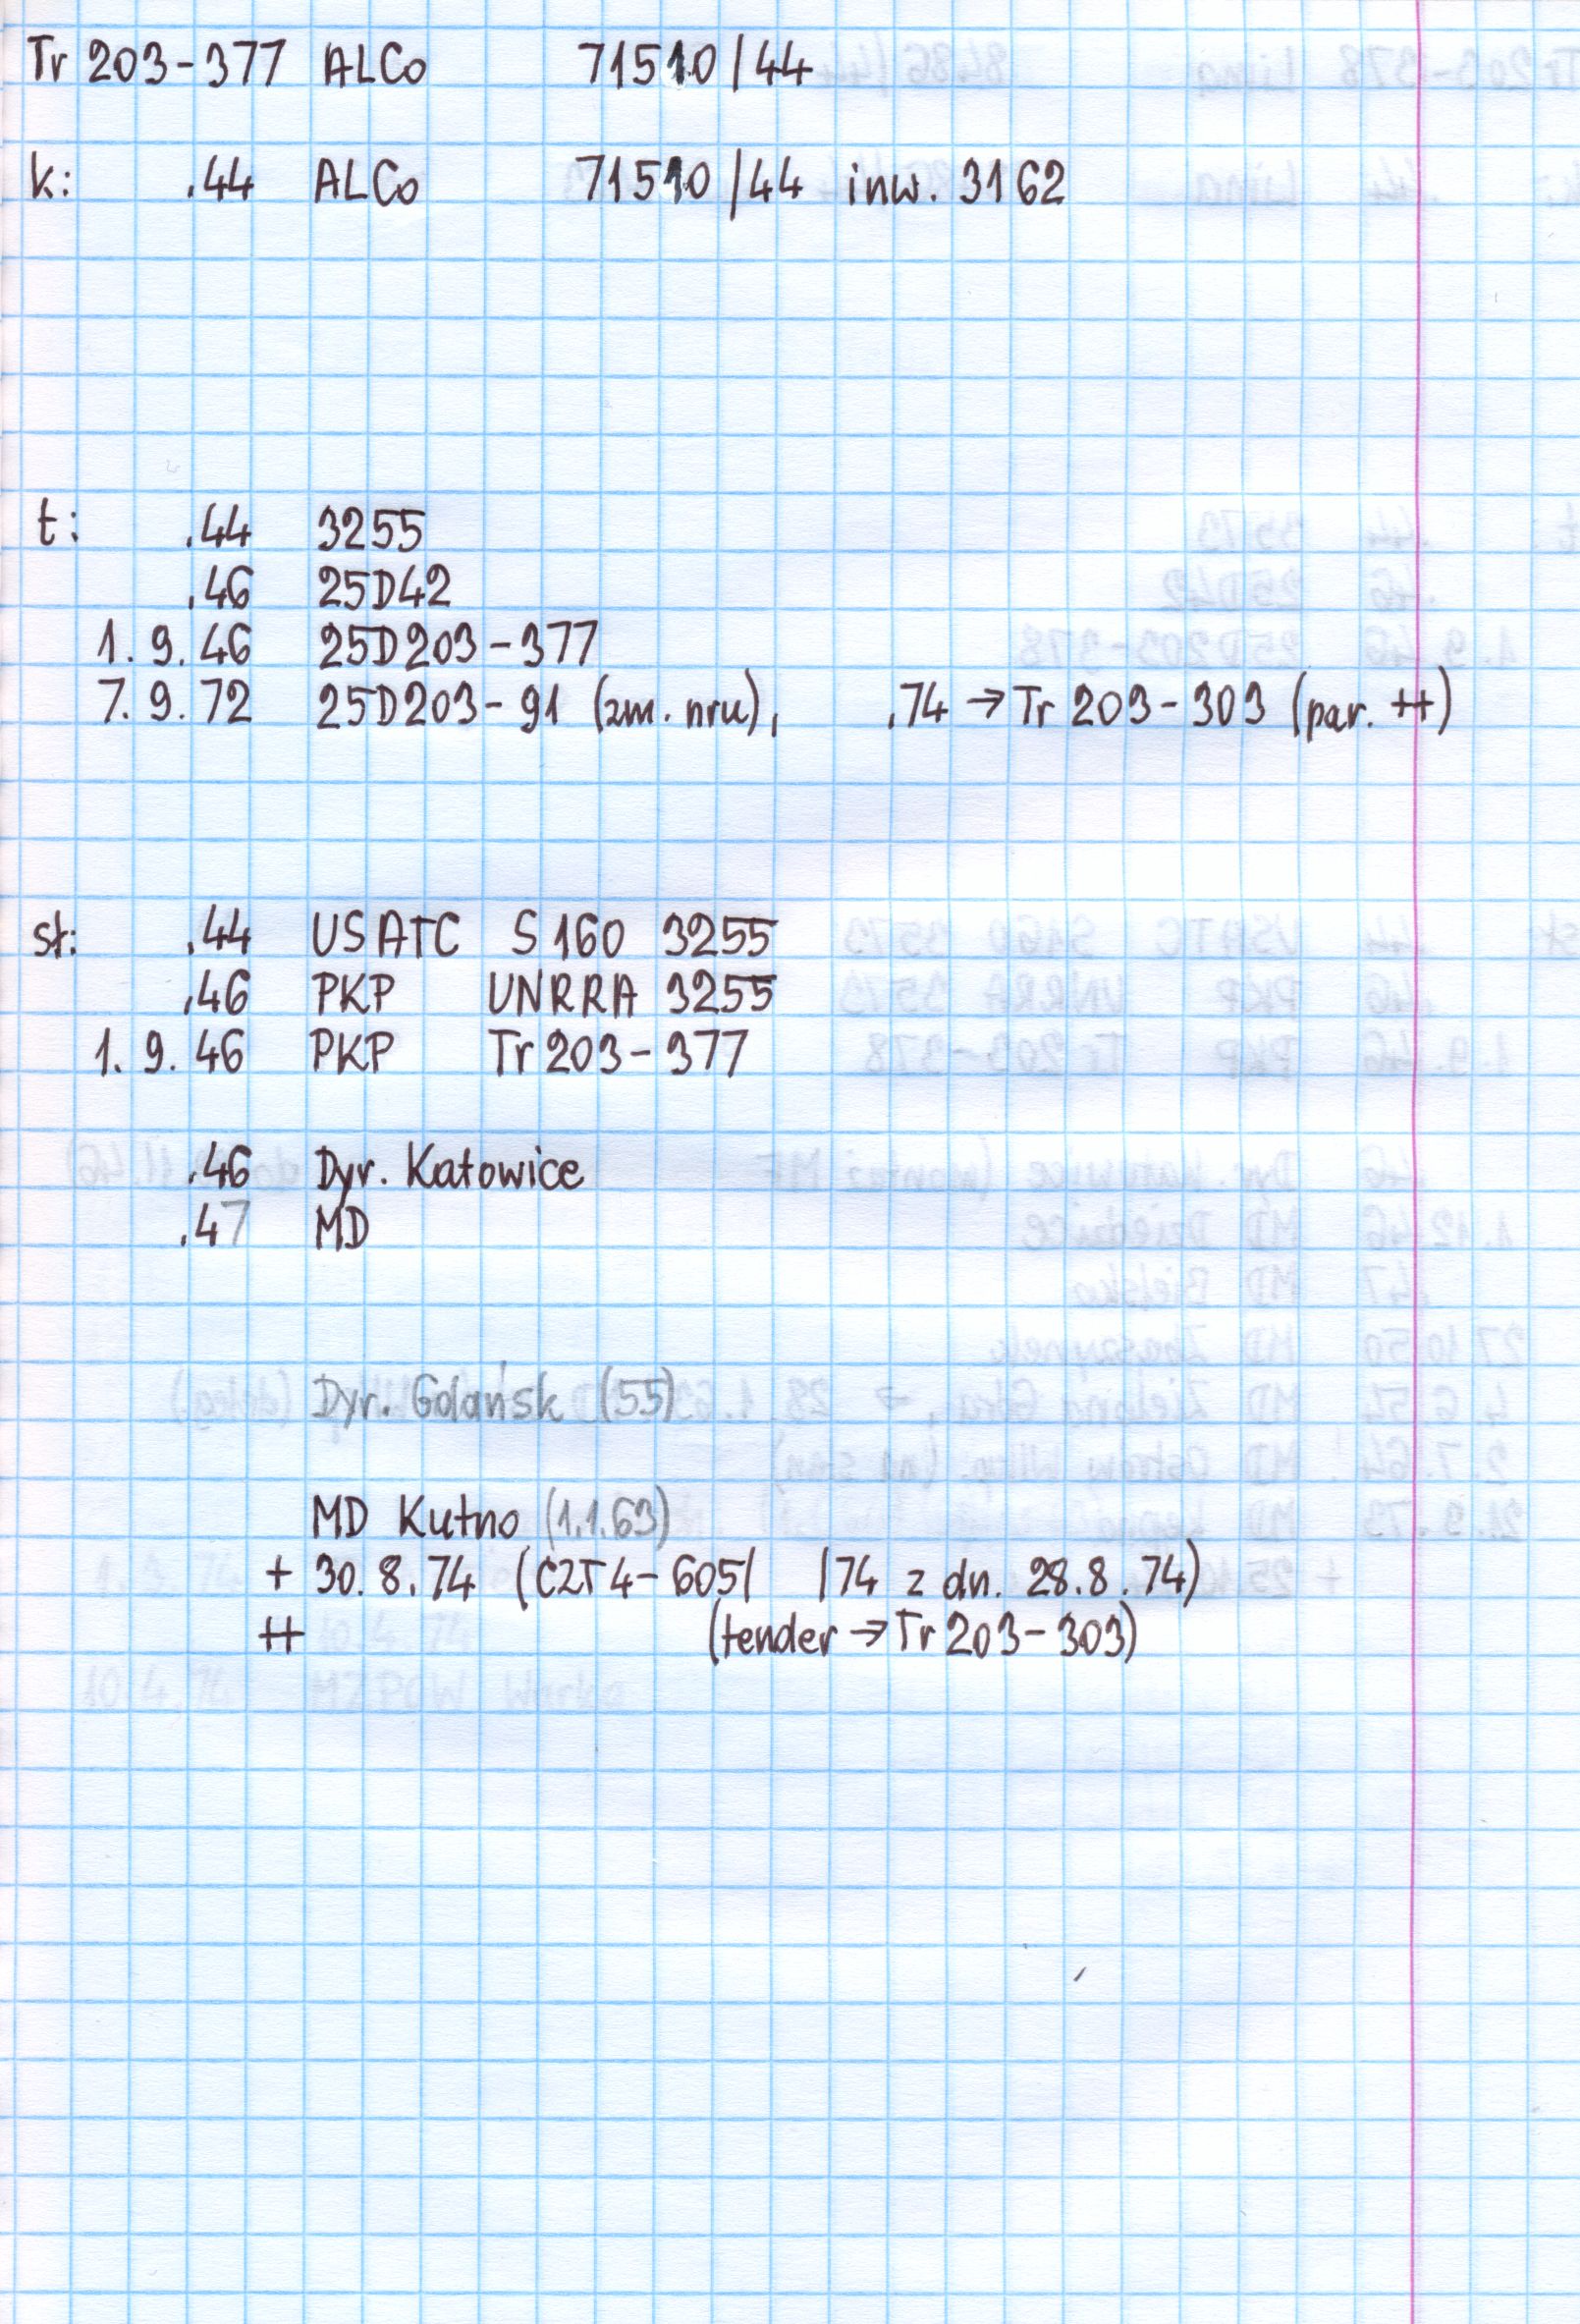 Tr 203-377 ALCo 71510/44
k: .44 ALCo 71510/44 inw. 3162
t: .44 3255
.46 25D42
1.9.46 25D203-377
7.9.72 25D203-91 (zm. nru), .74 → Tr 203-303 (par. ++)
st: .44 USATC S160 3255
.46 PKP UNRRA 3255
1.9.46 PKP Tr 203-377
.46 Dyr. Katowice
.47 MD
Dyr. Gdańsk (55)
MD Kutno (1.1.63)
+ 30.8.74 (CZT4-605/ /74 z dn. 28.8.74)
++ (tender → Tr 203-303)